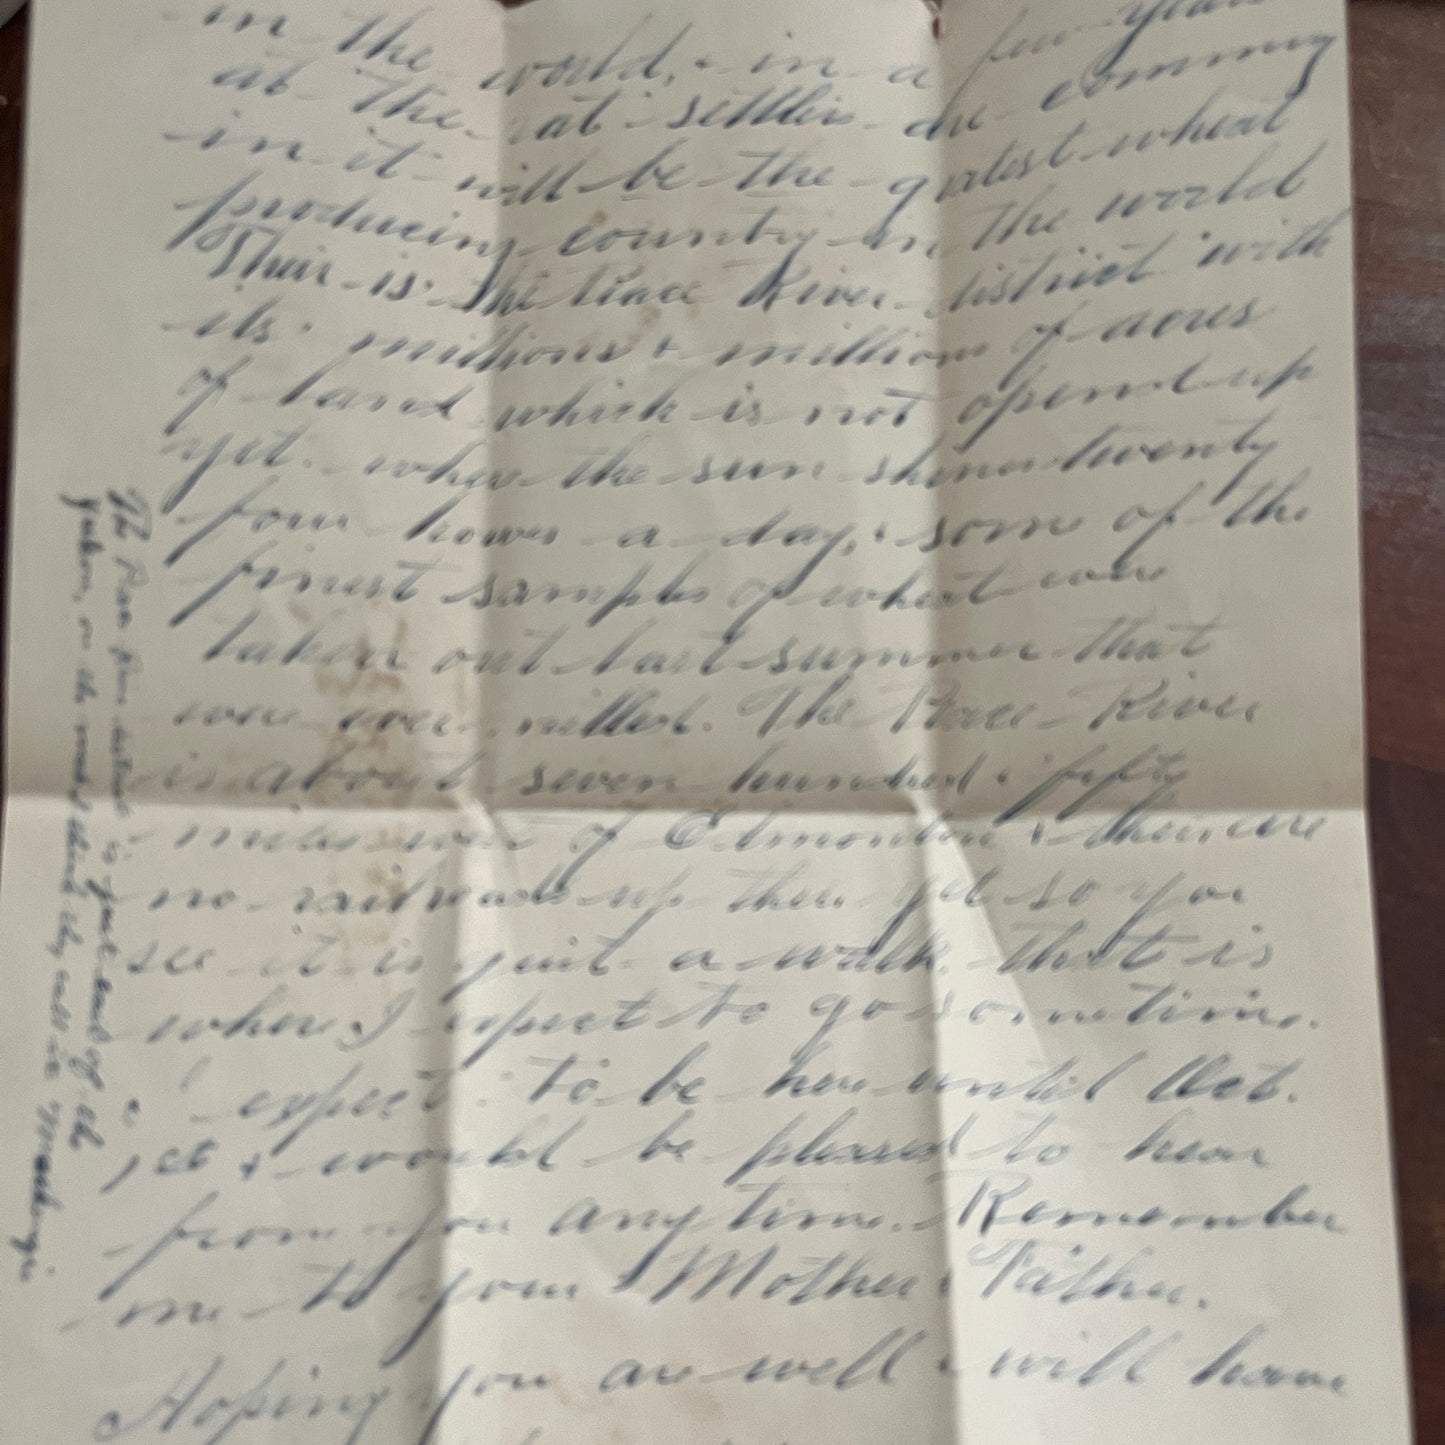 in the world, & in a few years
at the rat settlers are comming
in it will be the gratest wheat
producing country in the world
Their is the Peace River district with
its millions & millions of acres
of land which is not opened up
yet. where the sun shines twenty
four howrs a day, & some of the
finest samples of wheat were
taken out last summer that
were ever milled. The Peace River
is about seven hundred & fifty
miles of Edmonton & their are
no railroads up there yet so you
see it is quit a walk. that is
where I expect to go sometime.
I expect to be here until Oct.
yet & would be pleased to hear
from you any time. Remember
me to your Mother & Father.
Hoping you are well & will have
The Peace River district is just east of the
Yukon, or the call it Mackenzie